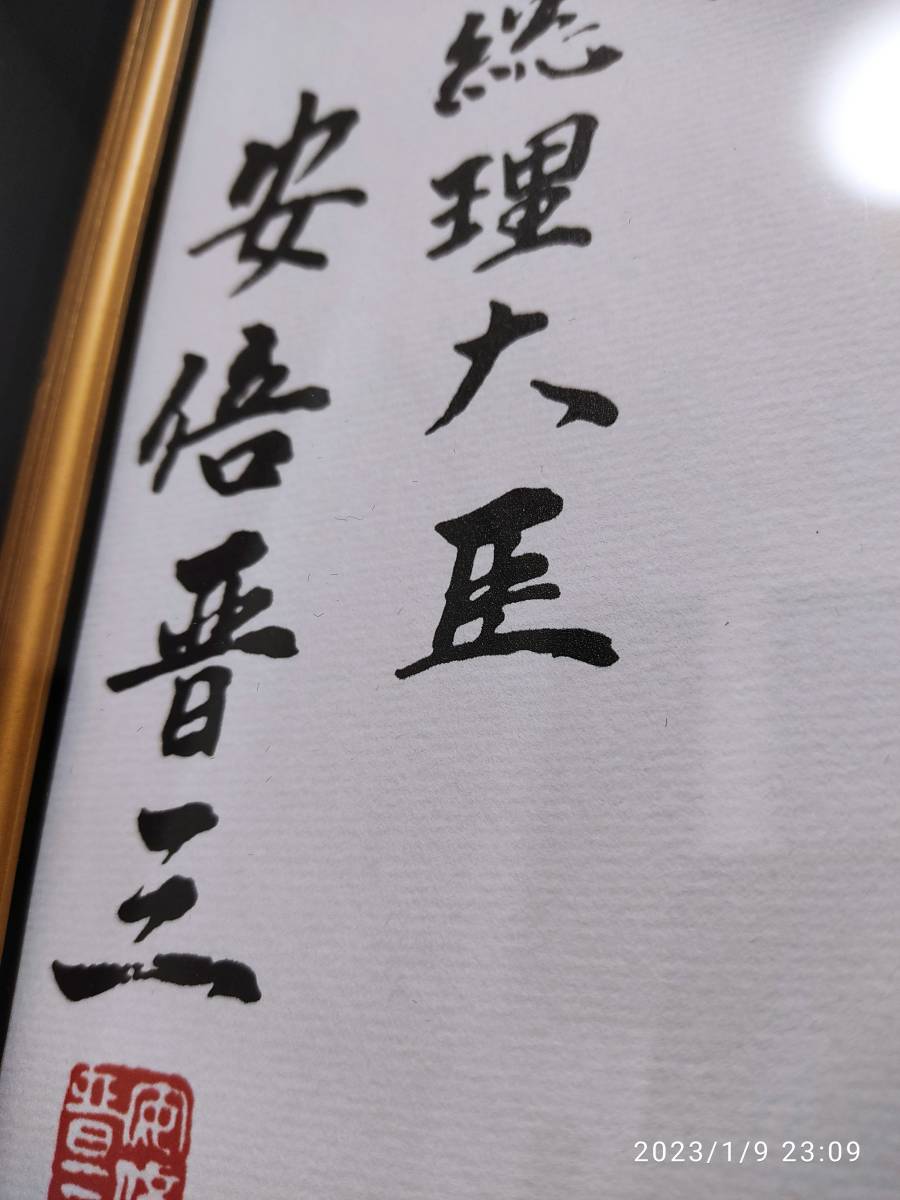 総理大臣
安倍晋三
安倍
晋三
2023/1/9 23:09